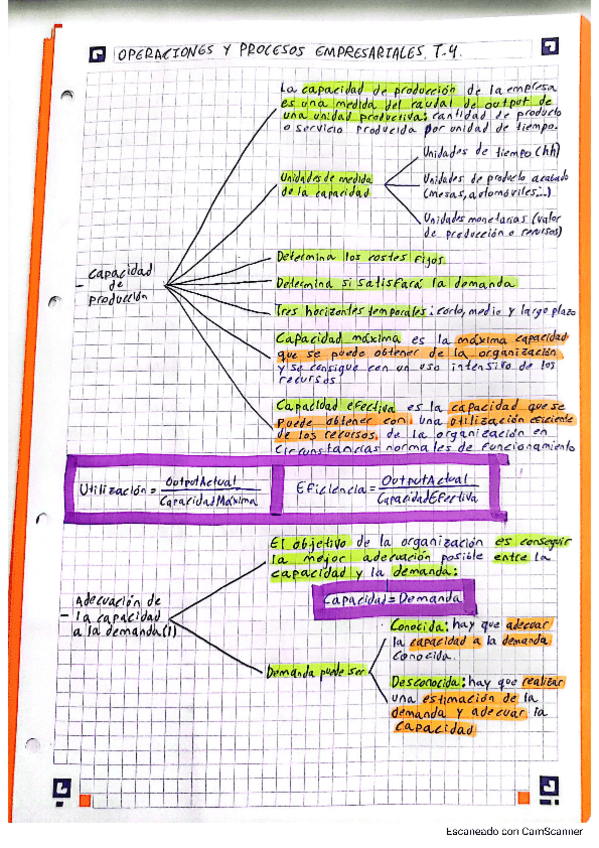 OPERACIONES Y PROCESOS EMPRESARIALES. T.4.
La capacidad de producción de la empresa
es una medida del caudal de output de
una unidad productiva: cantidad de producto
o servicio producida por unidad de tiempo.
Unidades de medida
de la capacidad
Unidades de tiempo (hh)
Unidades de producto acabado
(mesas, automóviles...)
Unidades monetarias (valor
de producción o recursos)
- Capacidad
de
producción
Determina los costes fijos
Determina si satisfará la demanda
Tres horizontes temporales: corto, medio y largo plazo
Capacidad máxima es la máxima capacidad
que se puede obtener de la organización
y se consigue con un uso intensivo de los
recursos
Capacidad efectiva es la capacidad que se
puede obtener con una utilización eficiente
de los recursos, de la organización en
circunstancias normales de funcionamiento
Utilización = OutputActual
CapacidadMáxima
Eficiencia = OutputActual
CapacidadEfectiva
El objetivo de la organización es conseguir
la mejor adecuación posible entre la
capacidad y la demanda:
Capacidad = Demanda
- Adecuación de
la capacidad
a la demanda (1)
Demanda puede ser
Conocida: hay que adecuar
la capacidad a la demanda
conocida.
Desconocida: hay que realizar
una estimación de la
demanda y adecuar la
capacidad
Escaneado con CamScanner